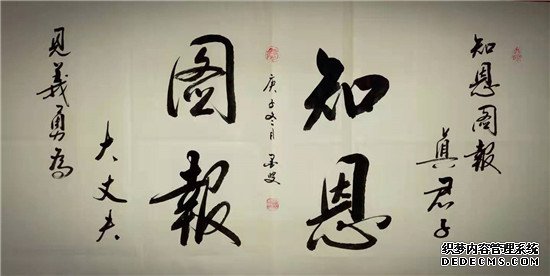 知恩图報
真君子
知恩
图報
庚子冬月 墨叟
见義勇為
大丈夫
织梦内容管理系统
DEDECMS.COM